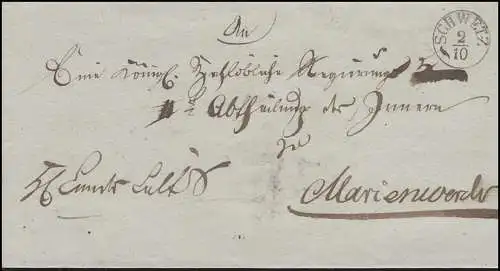 An
SCHWETZ
2/10
Eine Königl. Hochlöbliche Regierung
Abtheilung des Innern
zu
Marienwerder